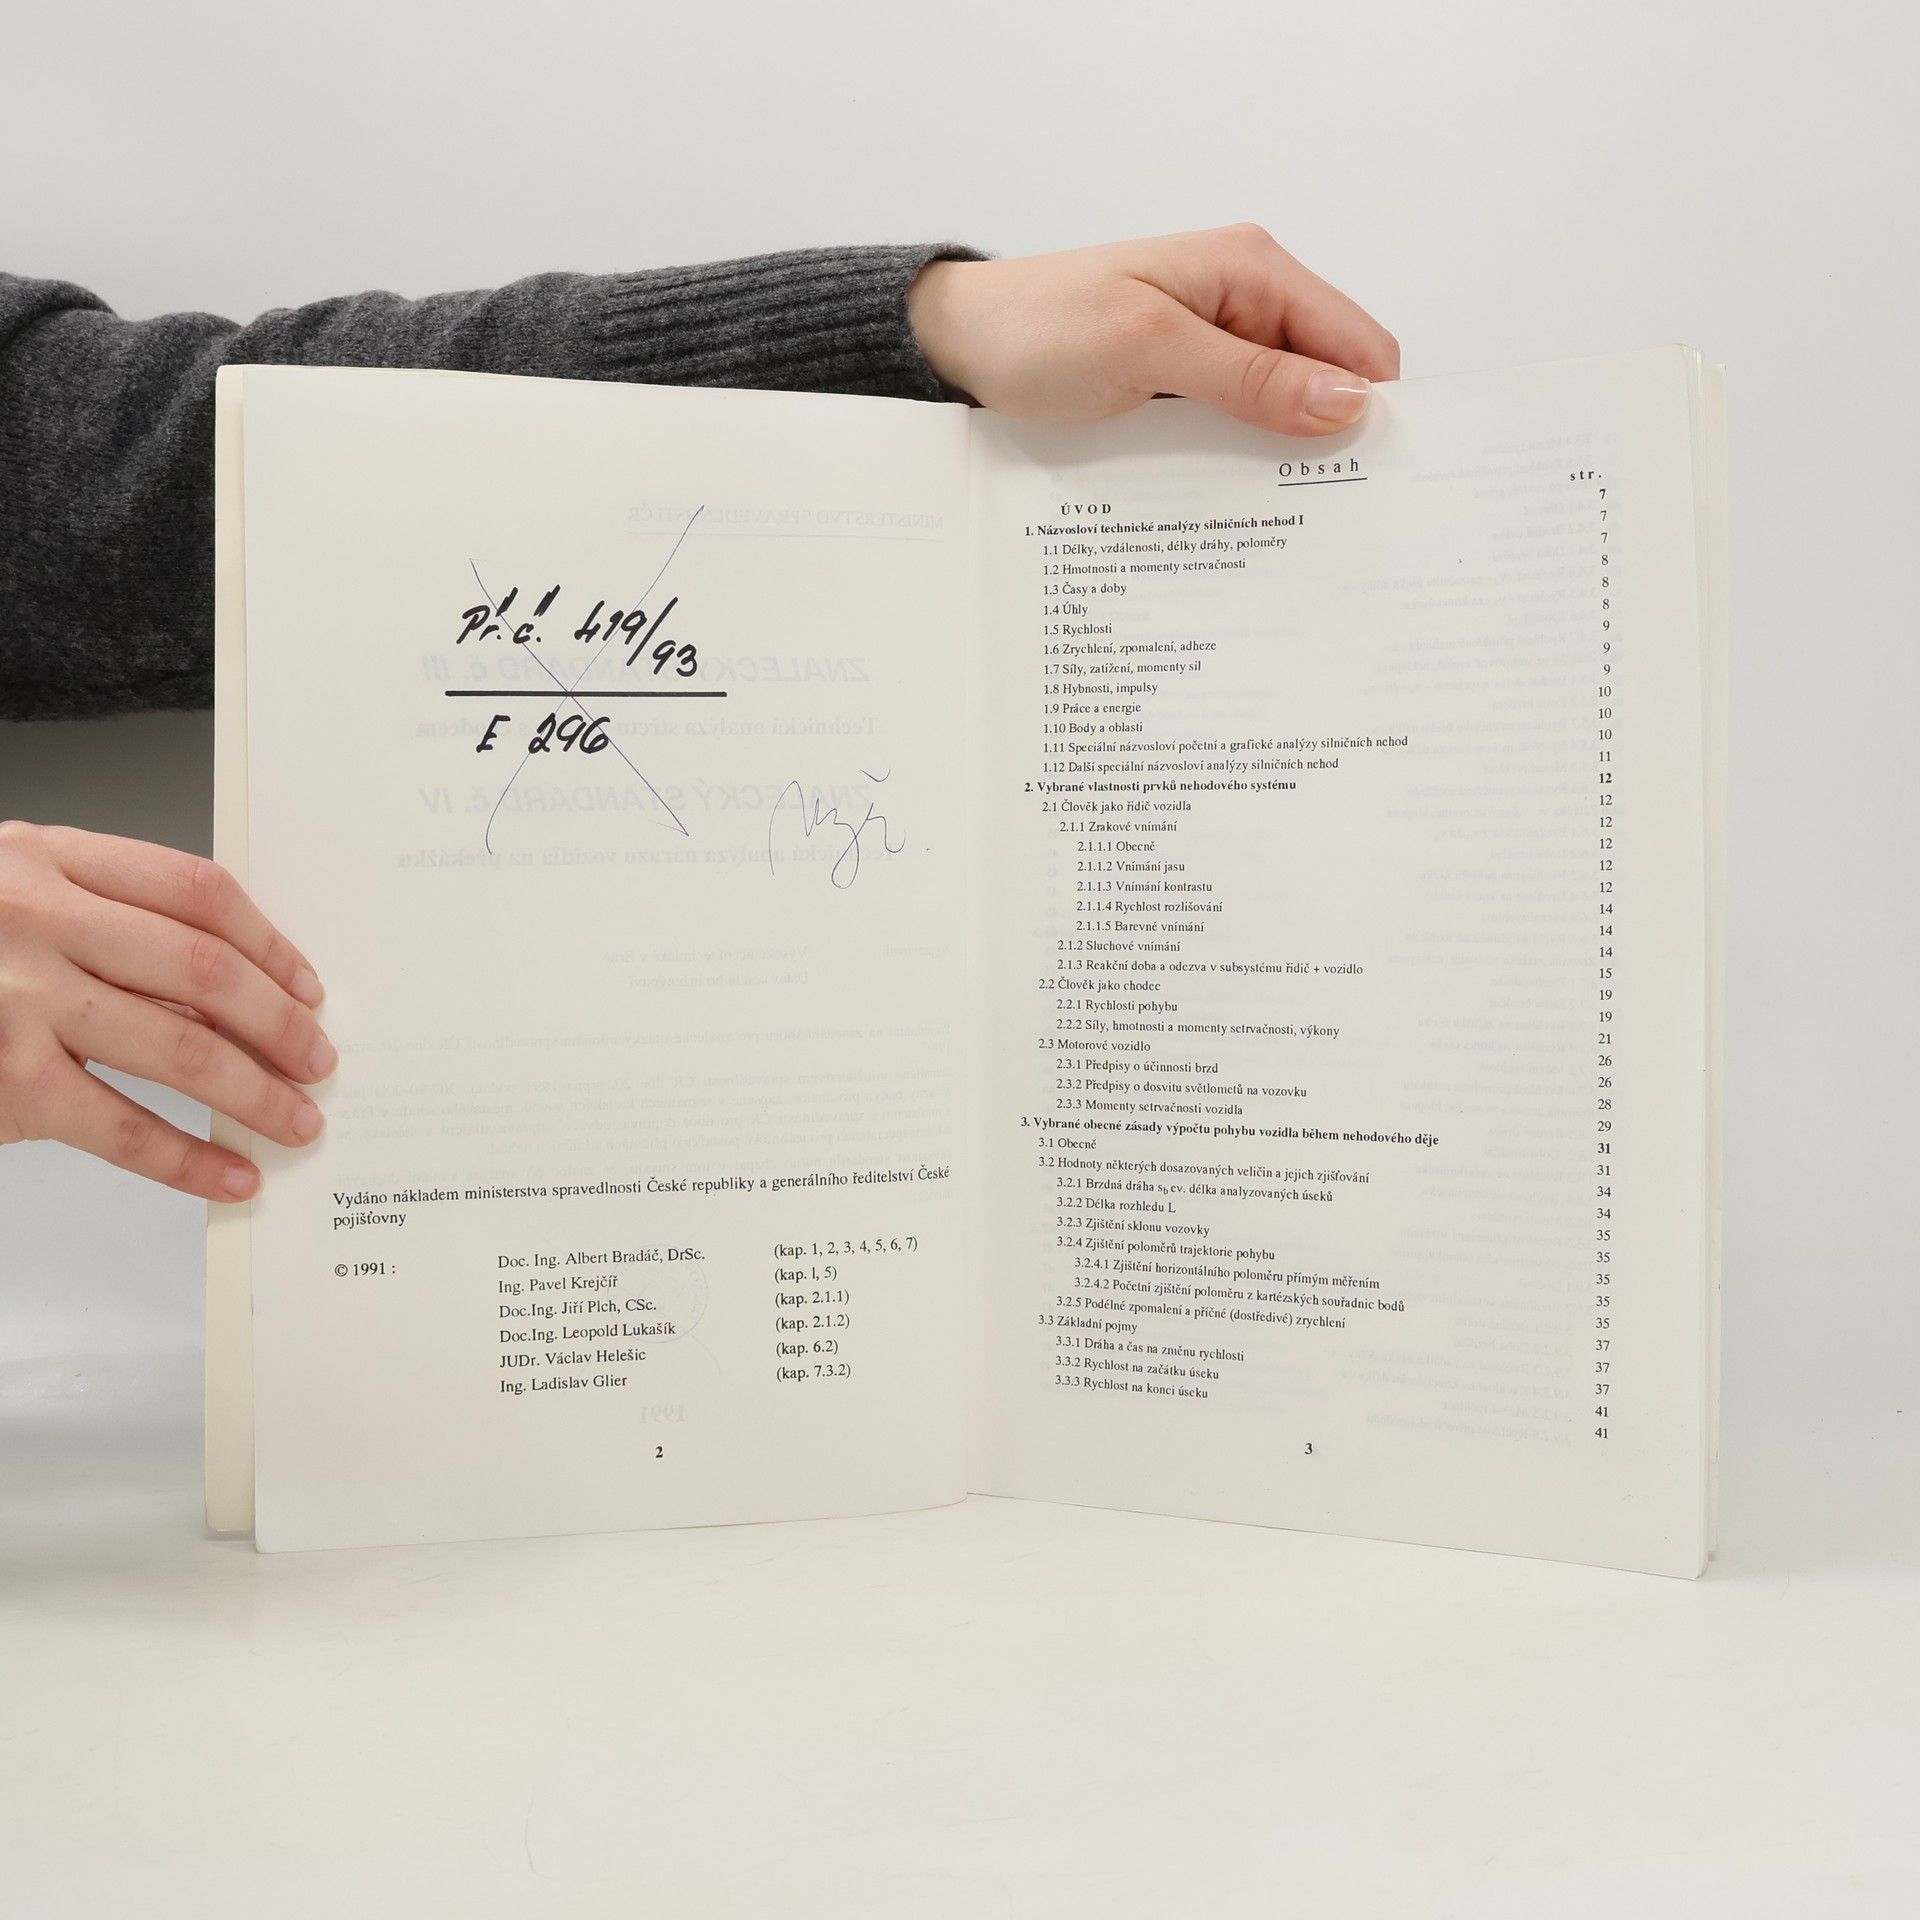 Př. č. 419/93
E 296
Vydáno nákladem ministerstva spravedlnosti České republiky a generálního ředitelství České
pojišťovny
© 1991 :
Doc. Ing. Albert Bradáč, DrSc. (kap. 1, 2, 3, 4, 5, 6, 7)
Ing. Pavel Krejčíř (kap. l, 5)
Doc.Ing. Jiří Plch, CSc. (kap. 2.1.1)
Doc.Ing. Leopold Lukašík (kap. 2.1.2)
JUDr. Václav Helešic (kap. 6.2)
Ing. Ladislav Glier (kap. 7.3.2)
2
Obsah
str.
ÚVOD
1. Názvosloví technické analýzy silničních nehod I
1.1 Délky, vzdálenosti, délky dráhy, poloměry
1.2 Hmotnosti a momenty setrvačnosti
1.3 Časy a doby
1.4 Úhly
1.5 Rychlosti
1.6 Zrychlení, zpomalení, adheze
1.7 Síly, zatížení, momenty sil
1.8 Hybnosti, impulsy
1.9 Práce a energie
1.10 Body a oblasti
1.11 Speciální názvosloví početní a grafické analýzy silničních nehod
1.12 Další speciální názvosloví analýzy silničních nehod
2. Vybrané vlastnosti prvků nehodového systému
2.1 Člověk jako řidič vozidla
2.1.1 Zrakové vnímání
2.1.1.1 Obecně
2.1.1.2 Vnímání jasu
2.1.1.3 Vnímání kontrastu
2.1.1.4 Rychlost rozlišování
2.1.1.5 Barevné vnímání
2.1.2 Sluchové vnímání
2.1.3 Reakční doba a odezva v subsystému řidič + vozidlo
2.2 Člověk jako chodec
2.2.1 Rychlosti pohybu
2.2.2 Síly, hmotnosti a momenty setrvačnosti, výkony
2.3 Motorové vozidlo
2.3.1 Předpisy o účinnosti brzd
2.3.2 Předpisy o dosvitu světlometů na vozovku
2.3.3 Momenty setrvačnosti vozidla
3. Vybrané obecné zásady výpočtu pohybu vozidla během nehodového děje
3.1 Obecně
3.2 Hodnoty některých dosazovaných veličin a jejich zjišťování
3.2.1 Brzdná dráha sb ev. délka analyzovaných úseků
3.2.2 Délka rozhledu L
3.2.3 Zjištění sklonu vozovky
3.2.4 Zjištění poloměrů trajektorie pohybu
3.2.4.1 Zjištění horizontálního poloměru přímým měřením
3.2.4.2 Početní zjištění poloměru z kartézských souřadnic bodů
3.2.5 Podélné zpomalení a příčné (dostředivé) zrychlení
3.3 Základní pojmy
3.3.1 Dráha a čas na změnu rychlosti
3.3.2 Rychlost na začátku úseku
3.3.3 Rychlost na konci úseku
7
7
7
8
8
8
9
9
9
10
10
10
11
12
12
12
12
12
12
14
14
14
15
19
19
21
26
26
28
29
31
31
34
34
35
35
35
35
35
37
37
37
41
41
3